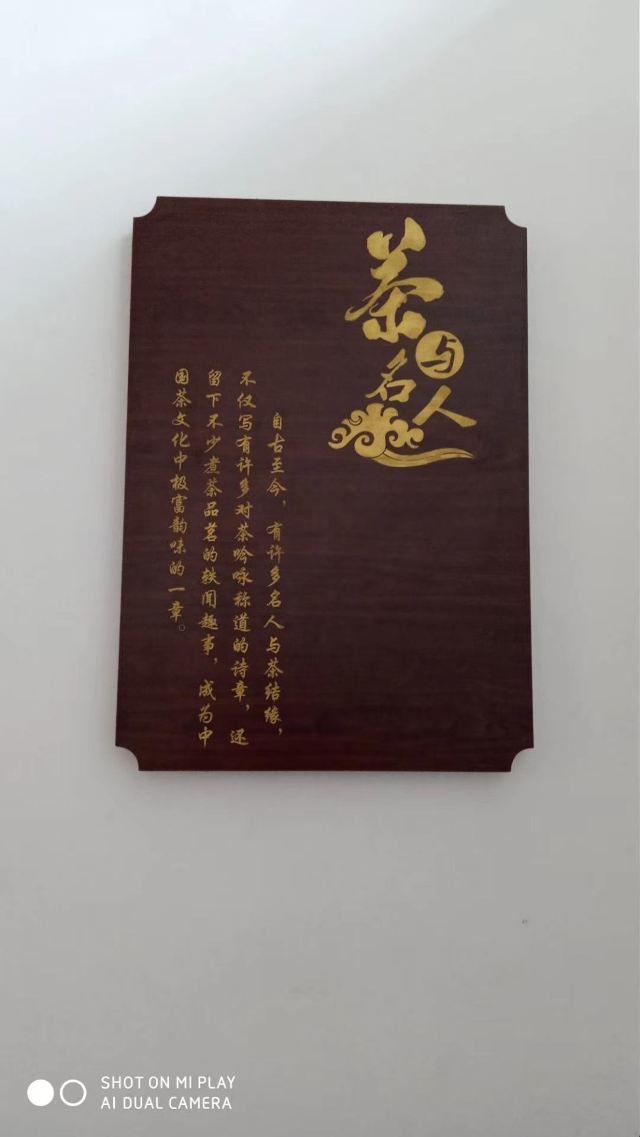 茶与名人
自古至今，有许多名人与茶结缘，
不仅写有许多对茶吟咏称道的诗章，还
留下不少煮茶品茗的轶闻趣事，成为中
国茶文化中极富韵味的一章。
SHOT ON MI PLAY
AI DUAL CAMERA